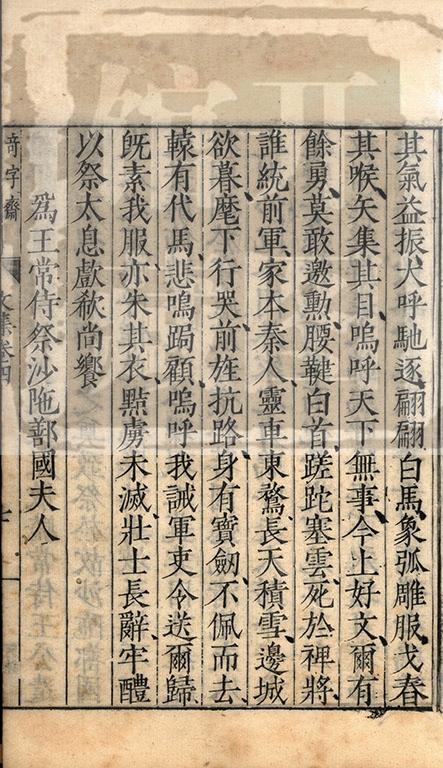 其氣益振犬呼馳逐翩翩白馬象弧雕服戈舂
其喉矢集其目嗚呼天下無事今上好文爾有
餘勇莫敢邀勲腰鞬白首蹉跎塞雲死於裨將
誰統前軍家本秦人靈車東騖長天積雪邊城
欲暮麾下行哭前旌抗路身有寶劒不佩而去
轅有代馬悲鳴跼顧嗚呼我誠軍吏令送爾歸
旣素我服亦朱其衣㸃虜未滅壯士長辭牢醴
以祭太息歔欷尚饗
爲王常侍祭沙陁鄯國夫人
竒字齋
文集卷四
七